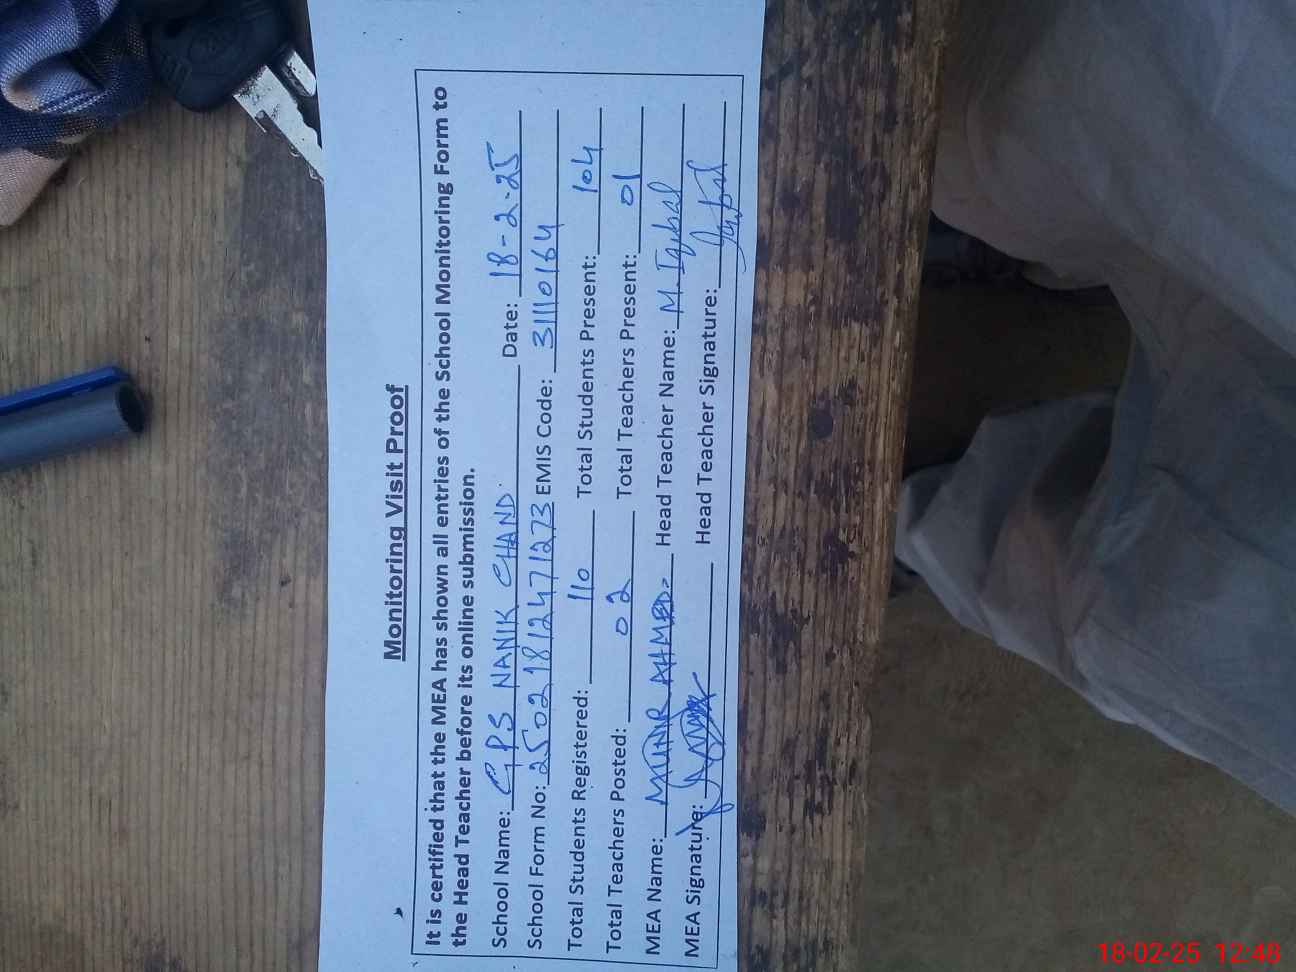 Monitoring Visit Proof
It is certified that the MEA has shown all entries of the School Monitoring Form to
the Head Teacher before its online submission.
School Name: GPS NANIK CHAND. Date: 18-2-25
School Form No: 2502181247 1273 EMIS Code: 31110164
Total Students Registered: 110 Total Students Present: 104
Total Teachers Posted: 02 Total Teachers Present: 01
MEA Name: MUNIR AHMED Head Teacher Name: M. Iqbal
MEA Signature: Head Teacher Signature: Iqbal
18-02-25 12:48